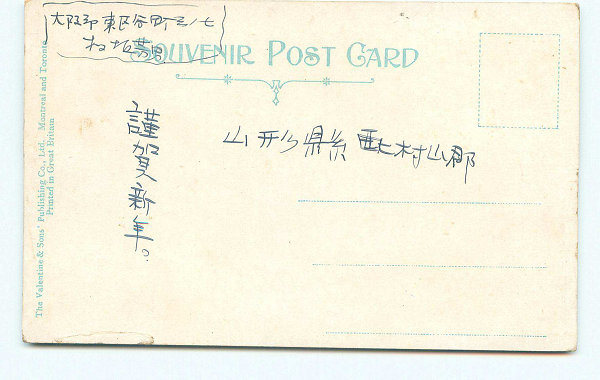 大阪市東区谷町三ノ七
SOUVENIR POST CARD
謹賀新年。
山形縣 村山郡
The Valentine & Sons' Publishing Co., Ltd., Montreal and Toronto
Printed in Great Britain